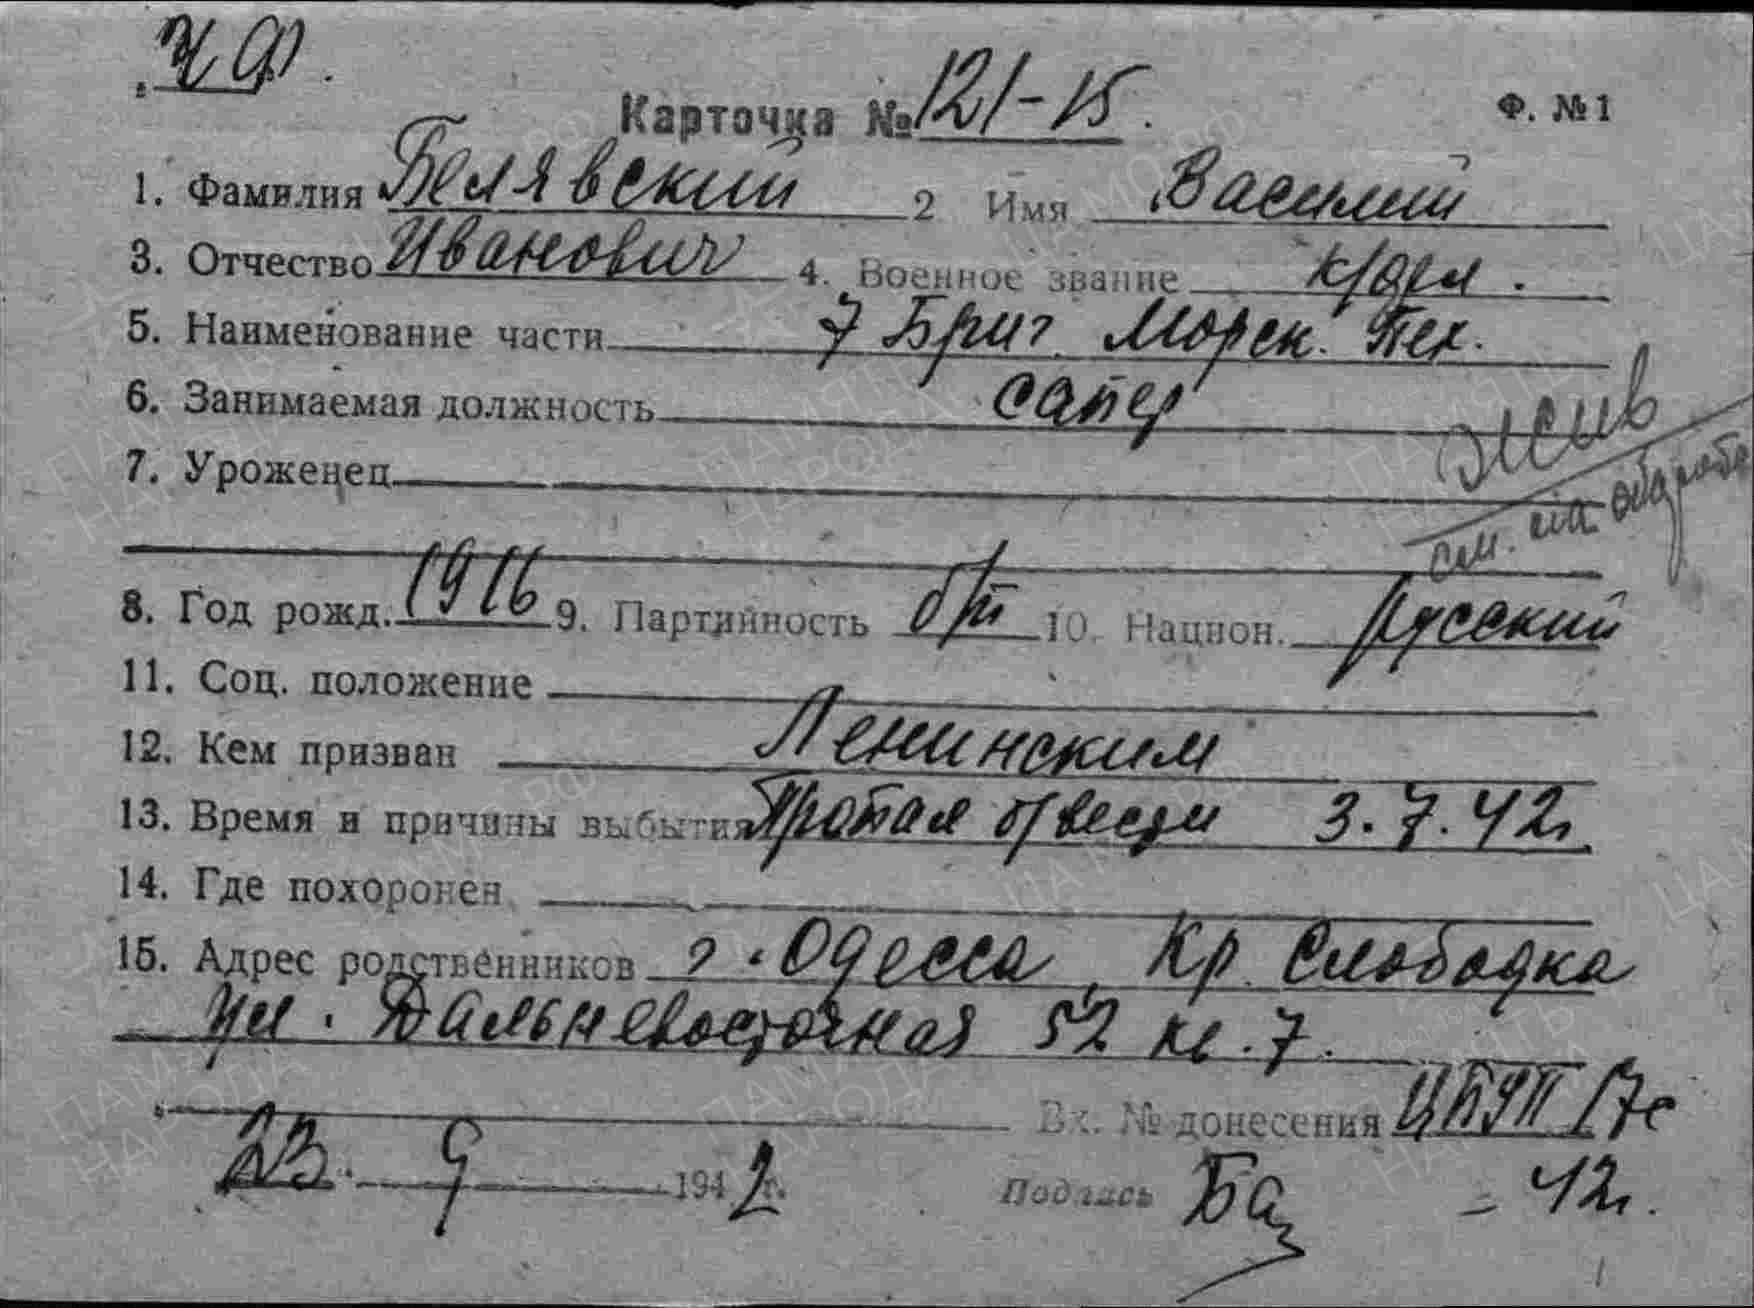 ЧФ.
Карточка № 121-15. Ф. №1
1. Фамилия Белявский 2 Имя Василий
3. Отчество Иванович 4. Военное звание к/фл.
5. Наименование части 7 Бриг. Морск. Пех.
6. Занимаемая должность сапер
жив
7. Уроженец
см. на обороте
8. Год рожд. 1916 9. Партийность б/п 10. Национ. Русский
11. Соц. положение
12. Кем призван Ленинским
13. Время и причины выбытия Пропал б/вести 3.7.42г.
14. Где похоронен
15. Адрес родственников г. Одесса, Кр. Слободка
ул. Дальневосточная 52 кв. 7.
Вх. № донесения 17с
23. 9 1942 г. Подпись - 42г.